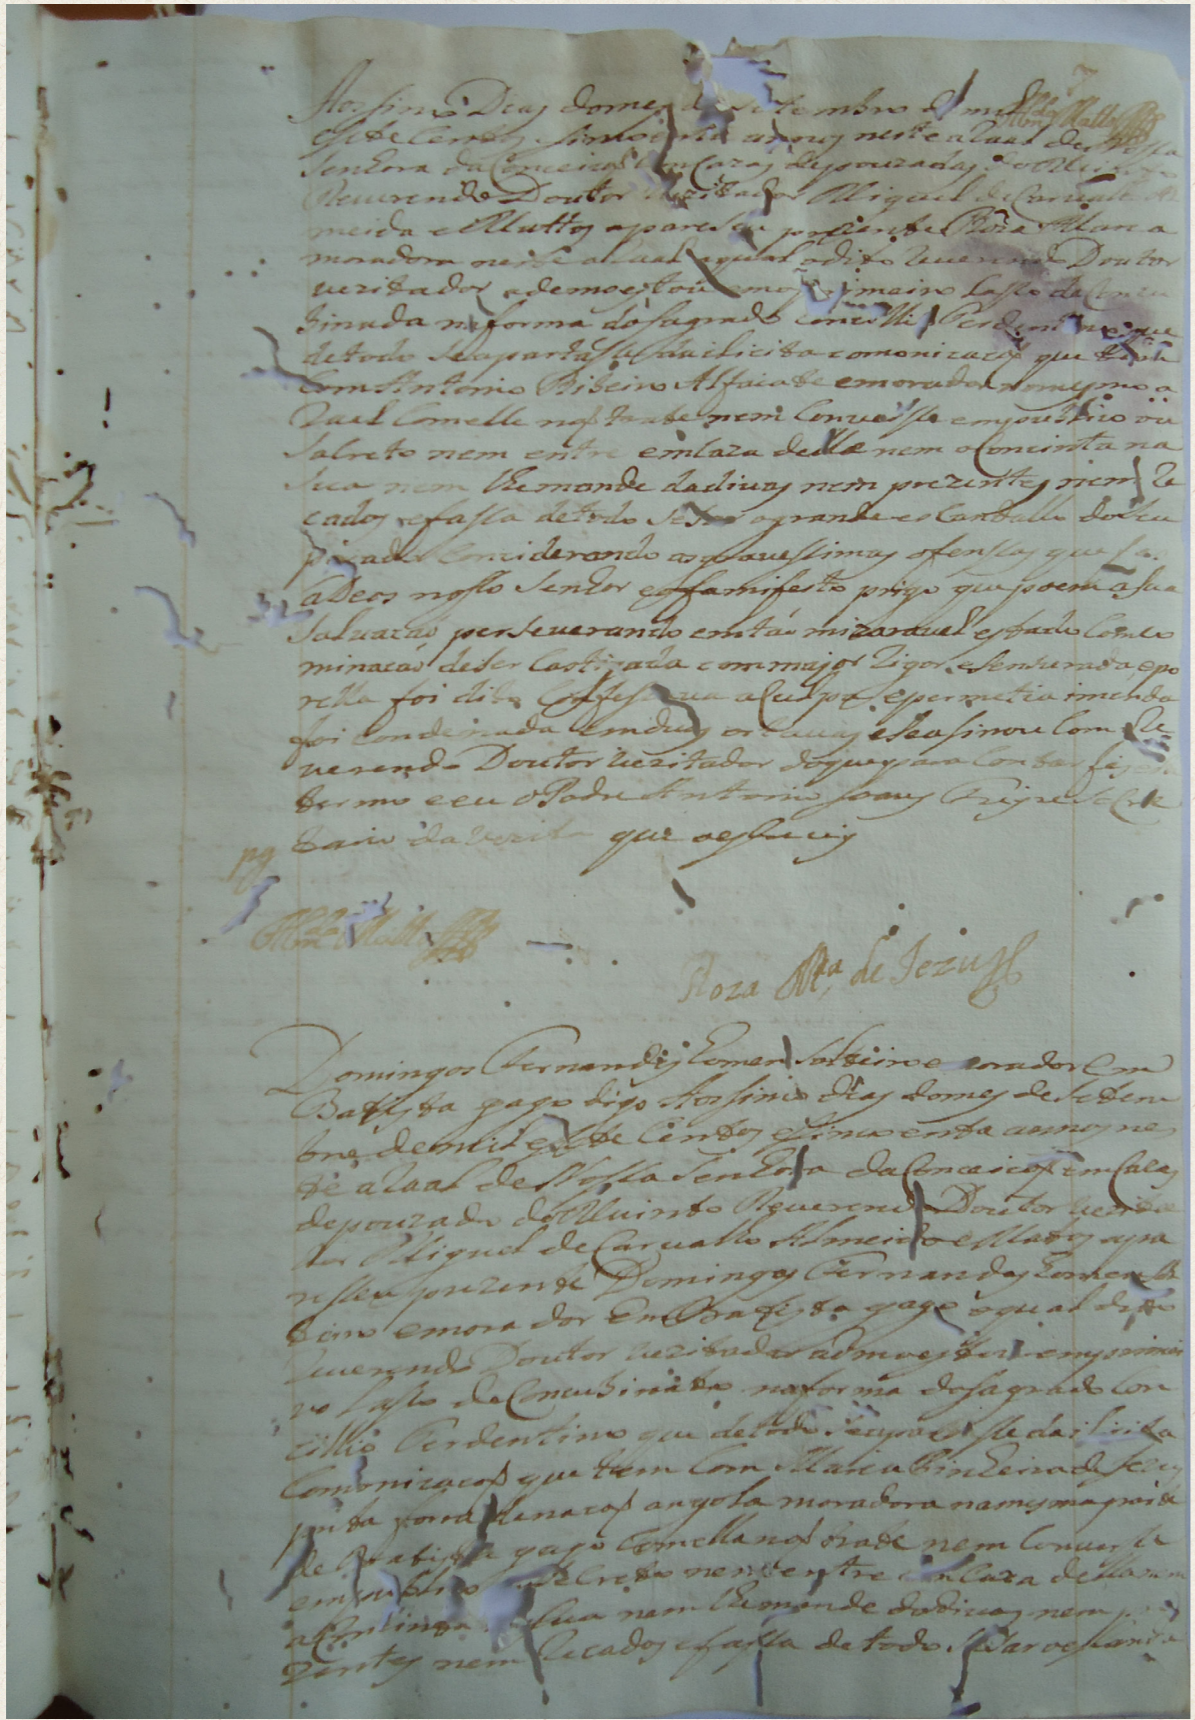 Aos sinco Dias do mes de Setembro de mil
e sete Centos e sincoenta annos neste aRaal de Nossa
Senhora da Conceicaõ em Cazas de pouzadas do
Reverendo Doutor Vezitador Miguel de Carvalho Al
meida e Mattos apareseu prezente Roza Maria
moradora neste aRaal a qual o dito Reverendo Doutor
vezitador ademoestou em o primeiro Lasso de Concu
binada na forma do Sagrado Concillio Terdentino que
de todo se apartasse da elicita comonicacaõ que tinha
Com Antonio Ribeiro Alfaiate e morador no mesmo a
Raal Com elle naõ trate nem Converse em publico ou
Secreto nem entre em Caza delle nem o Concinta na
sua nem lhe mande dadivas nem prezentes nem Re
cados e fassa de todo sesar o grande escandallo do seu
pecado Conciderando as gravessimas ofenssas que fas
a Deos nosso Senhor e o manifesto prigo que poem a sua
Salvacaõ perseverando em taõ mizaravel estado Com co
minacaõ de ser Castigada com major Rigor e sensurada, e po
rella foi dito Confessava a Culpa e permetia imenda
foi condenada em duas oitavas e se asinou Com o Re
verendo Doutor Vezitador do que para Constar fis este
termo e eu o Padre Antonio Freyre Secre
tario da Vezita que o escrevij
pg
Alm.da Mattos
Roza M.a de Jezus
Domingos Fernandes homem Solteiro e morador em
Batista gago digo Aos sinco dias do mes de Setem
bro de mil e sete Centos e sincoenta annos nes
te aRaal de Nossa Senhora da Conceicaõ em Cazas
de pouzada do Muinto Reverendo Doutor Vezita
dor Miguel de Carvalho Almeida e Mattos apa
resseu prezente Domingos Fernandes homem Sol
teiro e morador em Batista gago o qual dito
Reverendo Doutor vezitador admoestou em primei
ro Lasso de Concubinato na forma do Sagrado Con
cillio Terdentino que de todo se apartasse da ilicita
Comonicacaõ que tem Com Maria Pinheira de
preta forra de nacaõ angola moradora na mesma parte
de Batista gago Com ella naõ trate nem Converse
em publico Secreto nem entre em Caza della nem
a Consinta na Sua nem lhe mande dadivas nem pre
zentes nem Recados e fassa de todo sesar o escanda